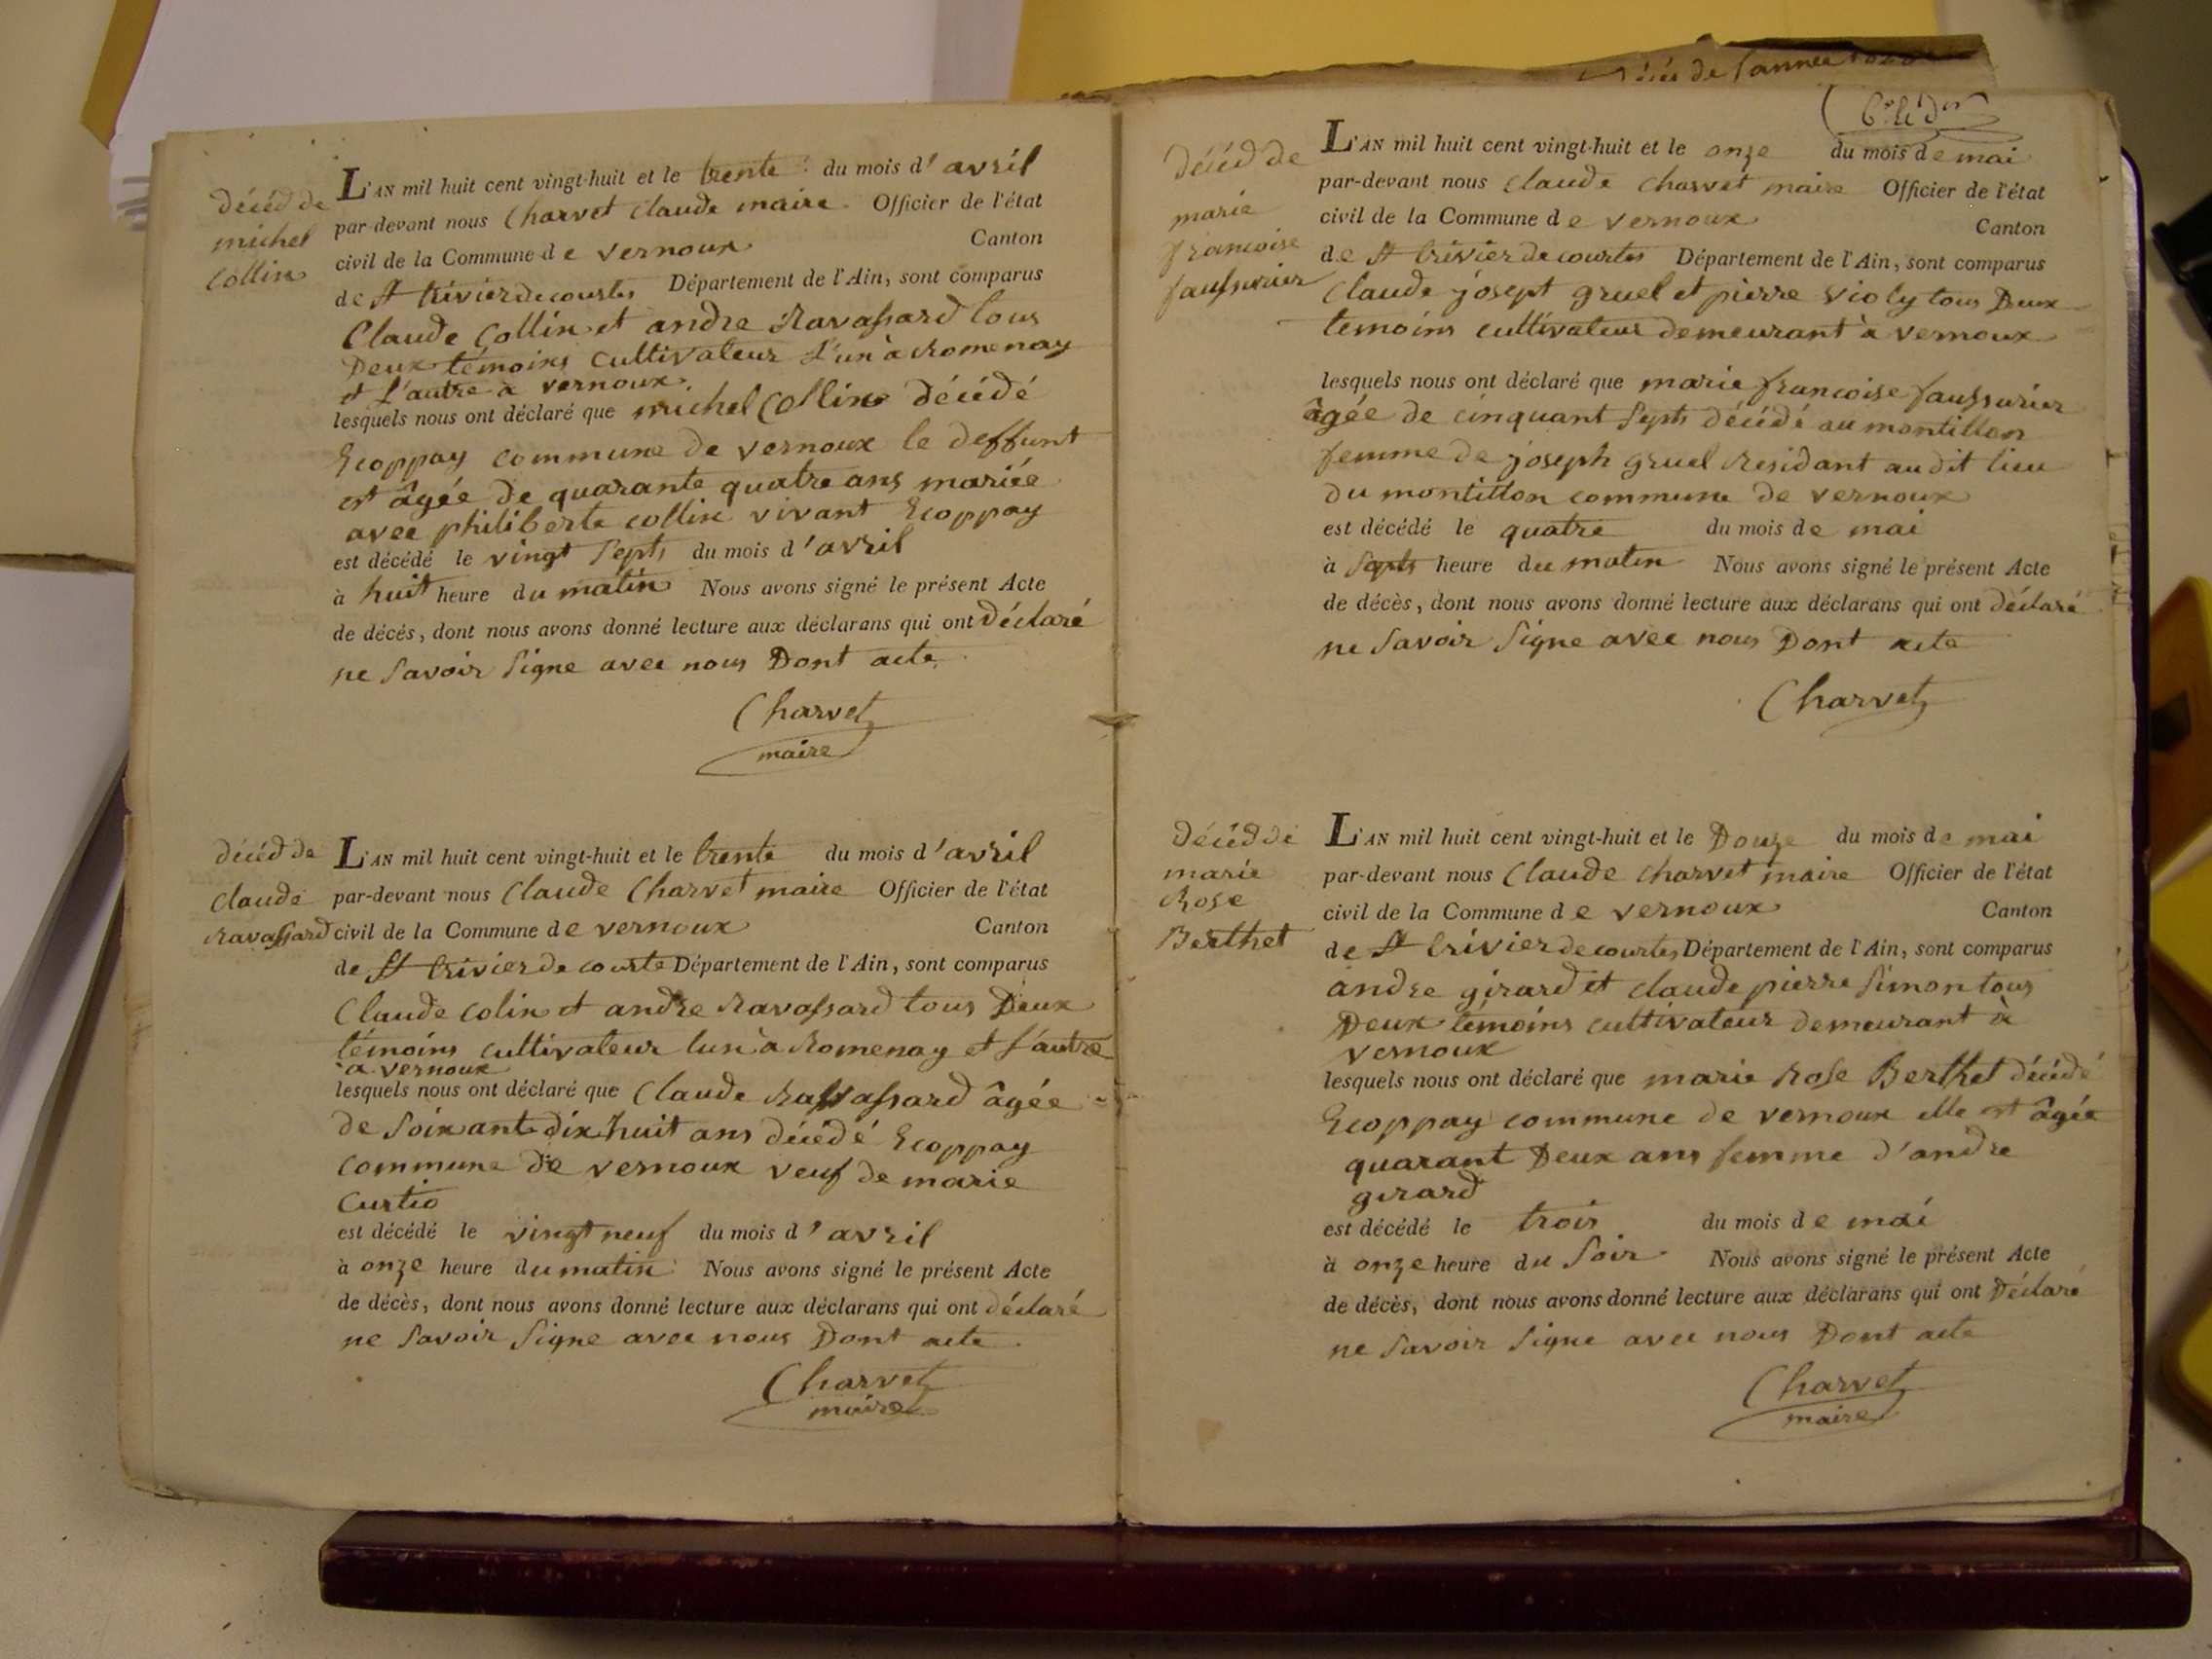 décéd de
michel
Collin
L'AN mil huit cent vingt-huit et le trente du mois d'avril
par-devant nous Charvet Claude maire Officier de l'état
civil de la Commune de vernoux Canton
de St trivier de courtes Département de l'Ain, sont comparus
Claude Collin et andre Ravassard tous
Deux témoins cultivateur L'un à Romenay
et L'autre à vernoux
lesquels nous ont déclaré que michel Collin décédé
Ecoppay commune de vernoux le deffunt
est âgée de quarante quatre ans mariée
avec philiberte collin vivant Ecoppay
est décédé le vingt septs du mois d'avril
à huit heure du matin Nous avons signé le présent Acte
de décés, dont nous avons donné lecture aux déclarans qui ont déclaré
ne savoir signe avec nous Dont acte
Charvet
maire
décéd de
claude
Ravassard
L'AN mil huit cent vingt-huit et le trente du mois d'avril
par-devant nous Claude Charvet maire Officier de l'état
civil de la Commune de vernoux Canton
de St trivier de courte Département de l'Ain, sont comparus
Claude colin et andre Ravassard tous Deux
témoins cultivateur lun à Romenay et l'autre
a vernoux
lesquels nous ont déclaré que Claude Ravassard âgée
de soixant dix huit ans décédé Ecoppay
commune de vernoux veuf de marie
Curtio
est décédé le vingt neuf du mois d'avril
à onze heure du matin Nous avons signé le présent Acte
de décès, dont nous avons donné lecture aux déclarans qui ont déclaré
ne savoir signe avec nous Dont acte
Charvet
maire
de l'année
décéd de
marie
francoise
faussurier
L'AN mil huit cent vingt-huit et le onze du mois de mai
par-devant nous claude charvet maire Officier de l'état
civil de la Commune de vernoux Canton
de St trivier de courtes Département de l'Ain, sont comparus
Claude josept gruel et pierre violy tous Deux
temoins cultivateur demeurant à vernoux
lesquels nous ont déclaré que marie francoise faussurier
âgée de cinquant septs décédé au montillon
femme de joseph gruel residant audit lieu
du montillon commune de vernoux
est décédé le quatre du mois de mai
à septs heure du matin Nous avons signé le présent Acte
de décès, dont nous avons donné lecture aux déclarans qui ont déclaré
ne savoir signe avec nous Dont acte
Charvet
décéd de
marie
Rose
Berthet
L'AN mil huit cent vingt-huit et le Douze du mois de mai
par-devant nous Claude charvet maire Officier de l'état
civil de la Commune de vernoux Canton
de St trivier de courtes Département de l'Ain, sont comparus
andre girard et claude pierre simon tous
Deux témoins cultivateur demeurant à
vernoux
lesquels nous ont déclaré que marie Rose Berthet décédé
Ecoppay commune de vernoux elle est âgée
quarant Deux ans femme d'andre
girard
est décédé le trois du mois de mai
à onze heure du soir Nous avons signé le présent Acte
de décès, dont nous avons donné lecture aux déclarans qui ont Déclaré
ne savoir signe avec nous Dont acte
Charvet
maire